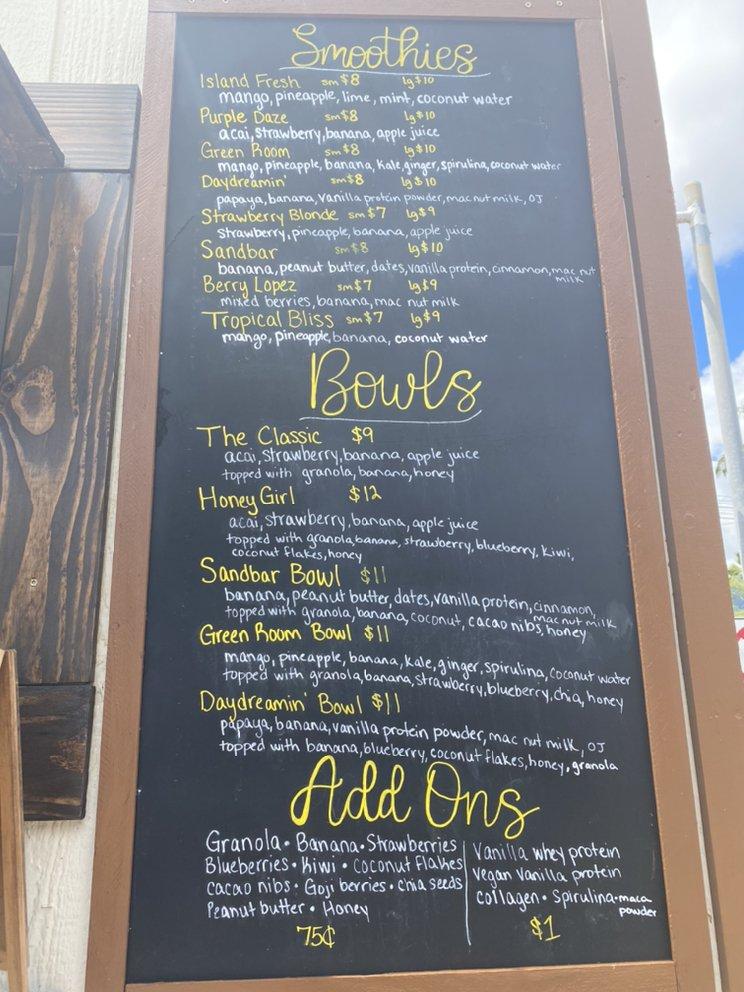 Smoothies
Island Fresh sm$8 lg$10
mango, pineapple, lime, mint, coconut water
Purple Daze sm$8 lg$10
acai, strawberry, banana, apple juice
Green Room sm$8 lg$10
mango, pineapple, banana, kale, ginger, spirulina, coconut water
Daydreamin' sm$8 lg$10
papaya, banana, vanilla protein powder, mac nut milk, OJ
Strawberry Blonde sm$7 lg$9
strawberry, pineapple, banana, apple juice
Sandbar sm$8 lg$10
banana, peanut butter, dates, vanilla protein, cinnamon, mac nut
milk
Berry Lopez sm$7 lg$9
mixed berries, banana, mac nut milk
Tropical Bliss sm$7 lg$9
mango, pineapple, banana, coconut water
Bowls
The Classic $9
acai, strawberry, banana, apple juice
topped with granola, banana, honey
Honey Girl $12
acai, strawberry, banana, apple juice
topped with granola, banana, strawberry, blueberry, kiwi,
coconut flakes, honey
Sandbar Bowl $11
banana, peanut butter, dates, vanilla protein, cinnamon,
mac nut milk
topped with granola, banana, coconut, cacao nibs, honey
Green Room Bowl $11
mango, pineapple, banana, kale, ginger, spirulina, coconut water
topped with granola, banana, strawberry, blueberry, chia, honey
Daydreamin' Bowl $11
papaya, banana, vanilla protein powder, mac nut milk, OJ
topped with banana, blueberry, coconut flakes, honey, granola
Add Ons
Granola • Banana • Strawberries
Blueberries • Kiwi • Coconut Flakes
cacao nibs • Goji berries • chia seeds
Peanut butter • Honey
75¢
Vanilla whey protein
vegan vanilla protein
collagen • Spirulina • maca
powder
$1